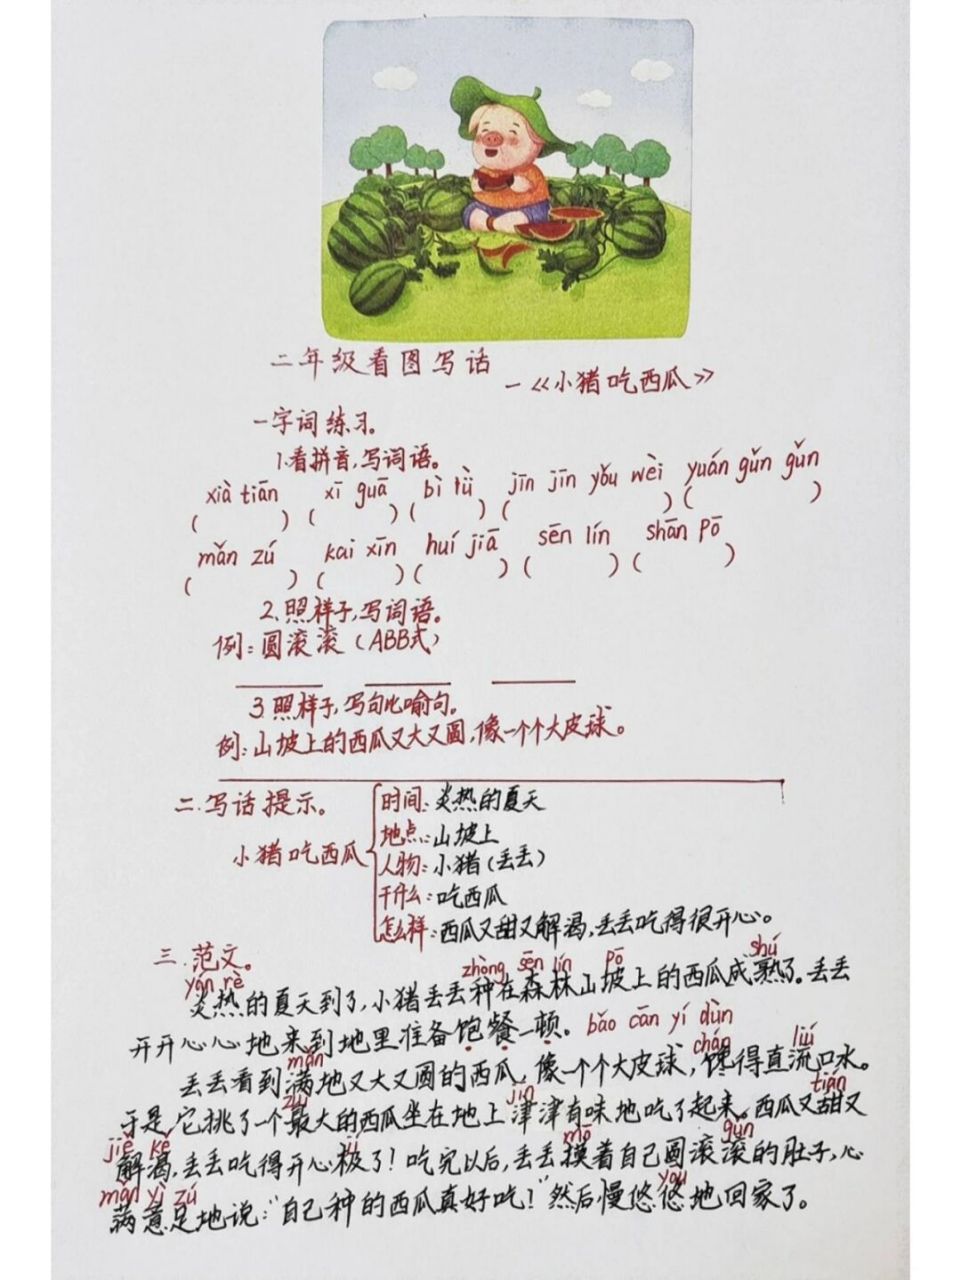 二年级看图写话
—《小猪吃西瓜》
一字词练习。
1.看拼音,写词语。
xià tiān xī guā bì lǜ jīn jīn yǒu wèi yuán gǔn gǔn
( ) ( ) ( ) ( ) ( )
mǎn zú kai xīn huí jiā sēn lín shān pō
( ) ( ) ( ) ( ) ( )
2.照样子,写词语。
例:圆滚滚(ABB式)
3.照样子,写句比喻句。
例:山坡上的西瓜又大又圆,像一个个大皮球。
二.写话提示。
时间:炎热的夏天
地点:山坡上
小猪吃西瓜
人物:小猪(丢丢)
干什么:吃西瓜
怎么样:西瓜又甜又解渴,丢丢吃得很开心。
三.范文。
yán rè zhòng sēn lín pō shú
炎热的夏天到了,小猪丢丢种在森林山坡上的西瓜成熟了。丢丢
开开心心地来到地里准备饱餐一顿。bǎo cān yí dùn
mǎn chán liú
丢丢看到满地又大又圆的西瓜,像一个个大皮球,馋得直流口水。
zuì jīn tián
于是,它挑了一个最大的西瓜坐在地上津津有味地吃了起来。西瓜又甜又
jiě kě jí mō gǔn
解渴,丢丢吃得开心极了!吃完以后,丢丢摸着自己圆滚滚的肚子,心
mǎn yì zú you
满意足地说:“自己种的西瓜真好吃!”然后慢悠悠地回家了。